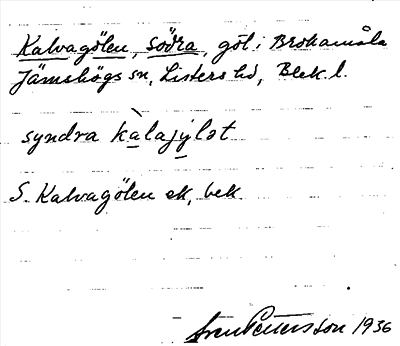 Kalvagölen, Södra, göl i Brokamåla
Jämshögs sn, Listers hd, Blek. l.
syndra kàlajylot
S. Kalvagölen ek, bek.
Sven Pettersson 1936